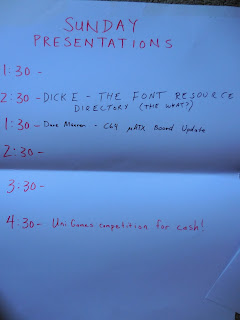 SUNDAY
PRESENTATIONS
1:30 -
2:30 - DICK E - THE FONT RESOURCE
DIRECTORY (THE WHAT?)
1:30 - Dave Mannen - C64 µATX Board Update
2:30 -
3:30 -
4:30 - UniGames competition for cash!